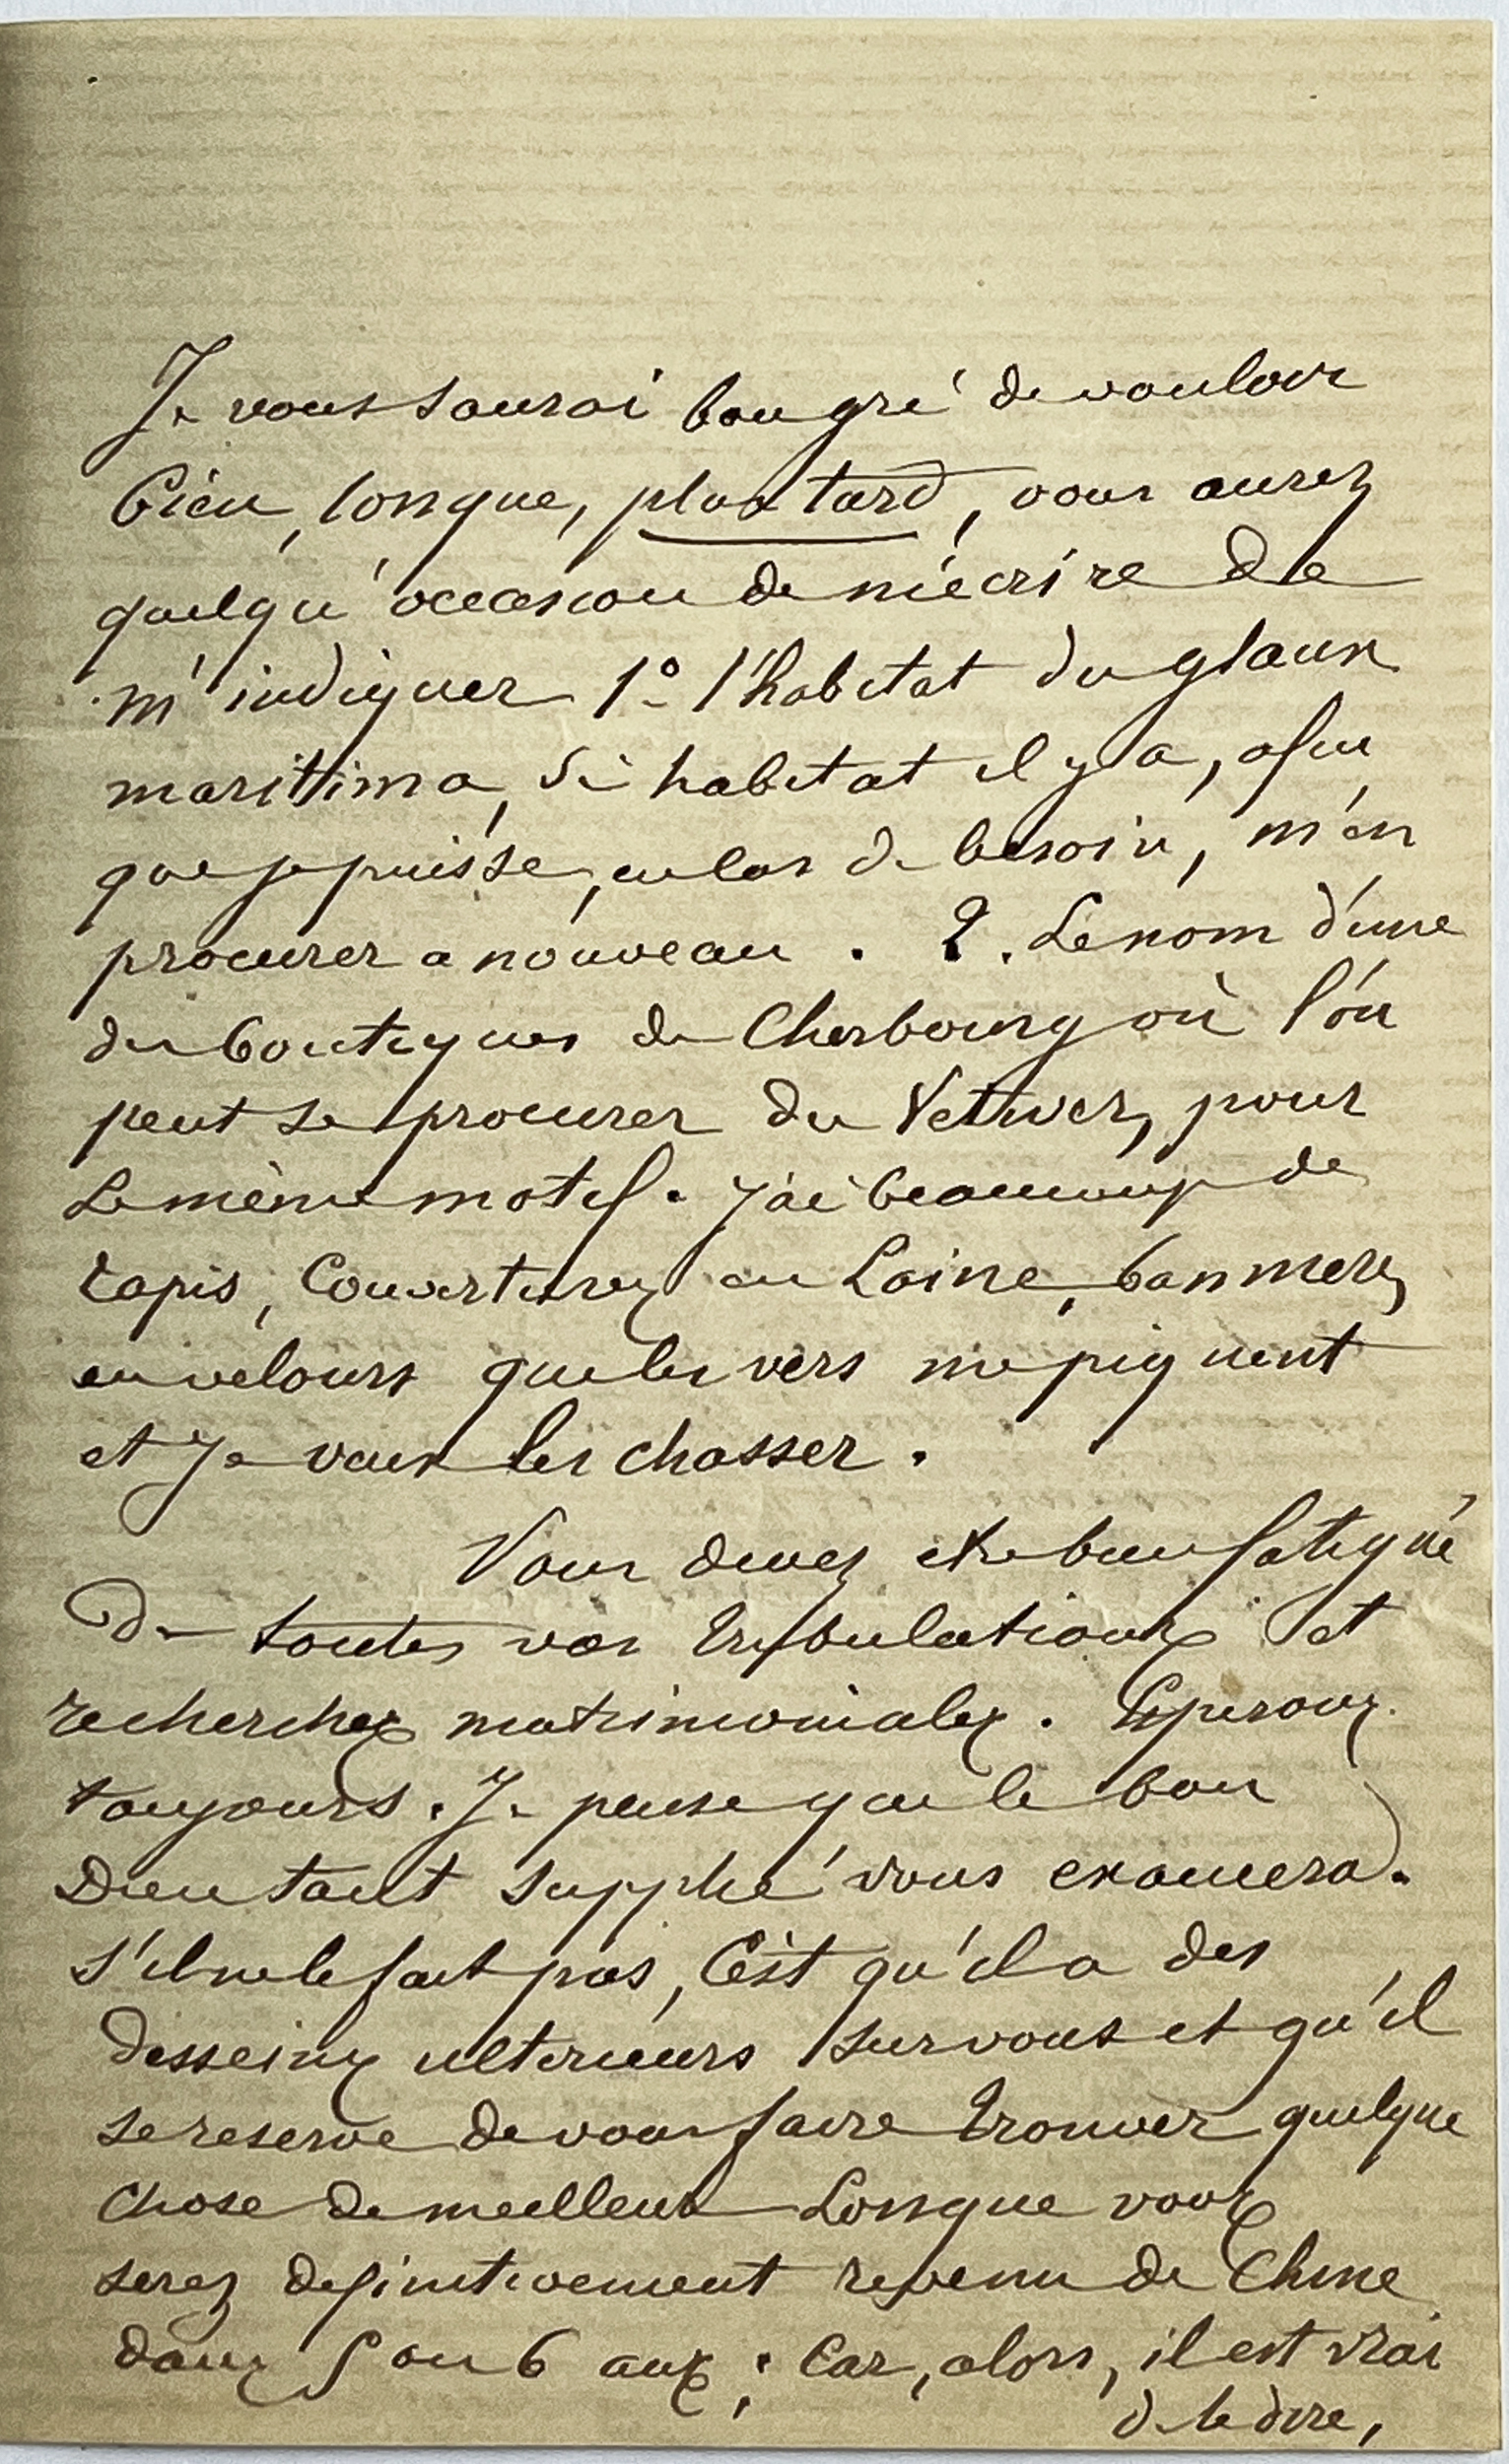 Je vous saurai bon gré de vouloir
bien, lorsque, plus tard, vous aurez
quelqu'occasion de m'écrire de
m'indiquer 1º l'habitat du glaux
maritima, si habitat il y a, afin
que je puisse, en cas de besoin, m'en
procurer a nouveau. 2. Le nom d'une
des boutiques de Cherbourg où l'on
peut se procurer du Vetiver, pour
le même motif. J'ai beaucoup de
tapis, Couvertures en Laine,
en velours que les vers me piquent
et je veux les chasser.
Vous devez etre bien fatigué
De toutes vos tribulations et
recherches matrimoniales. Esperons
toujours. Je pense que le bon
Dieu tant supplié vous exaucera.
S'il ne le fait pas, C'est qu'il a des
desseins ulterieurs sur vous et qu'il
se reserve de vous faire trouver quelque
chose de meilleur Lorsque vous
serez definitivement revenu de Chine
dans 5 ou 6 ans; Car, alors, il est vrai
de le dire,